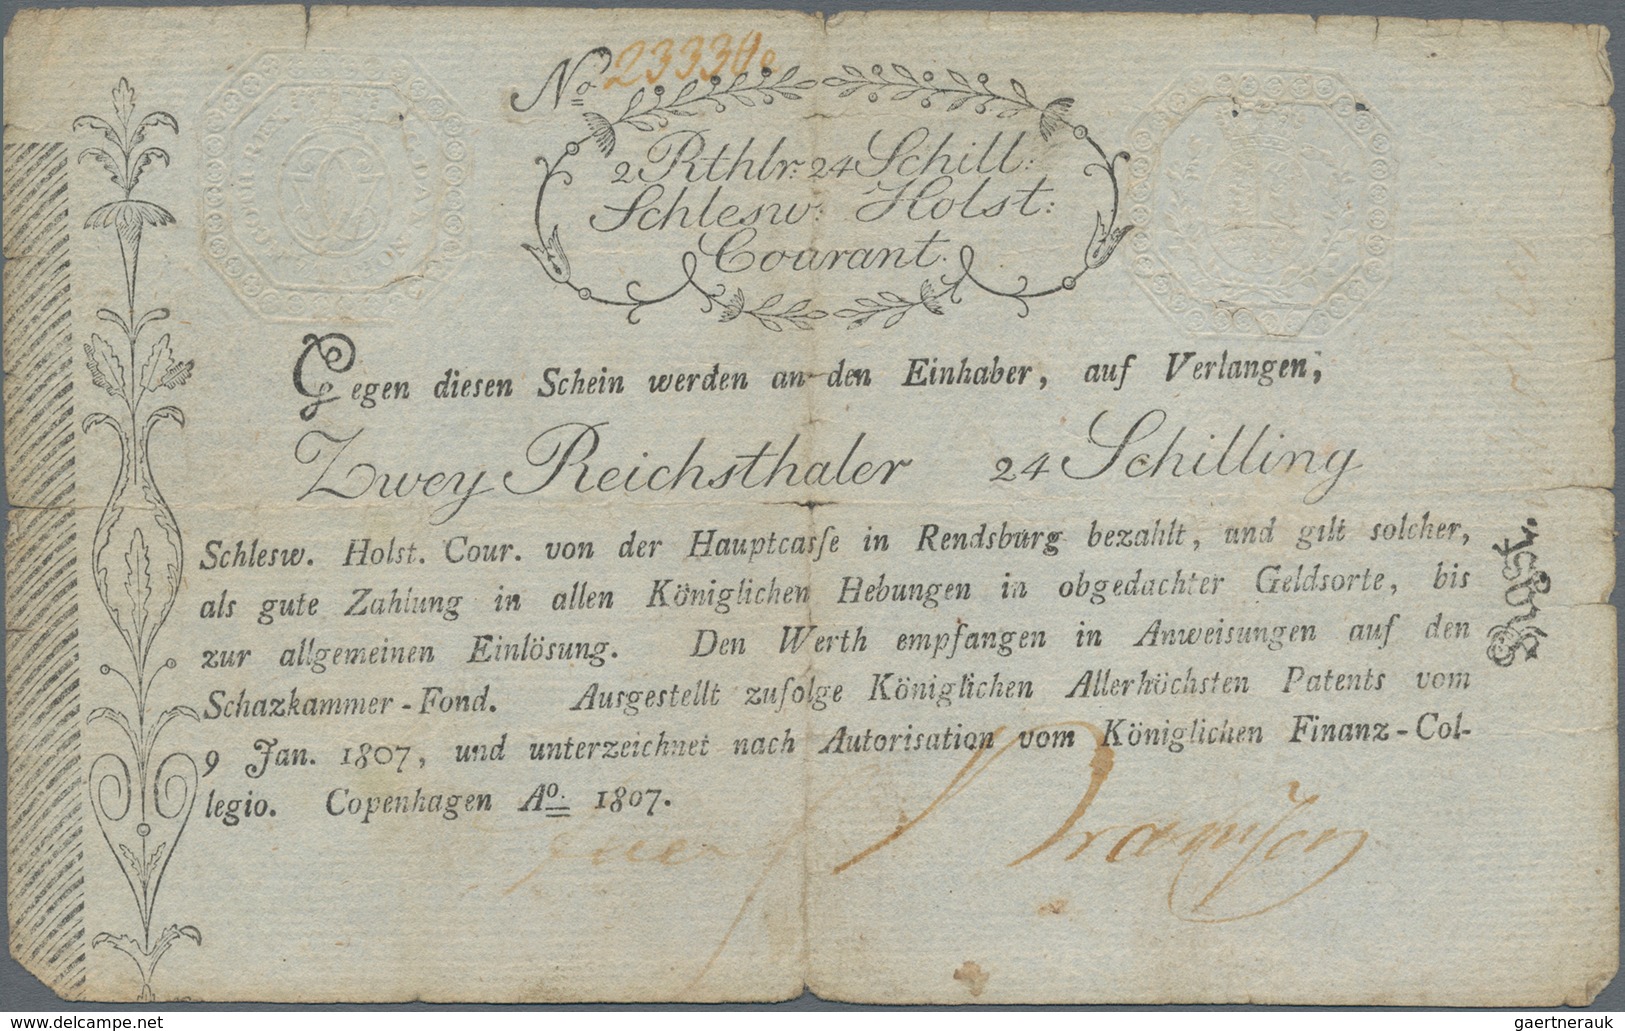 No.
2 Rthlr: 24 Schill:
Schlesw: Holst:
Courant.
Gegen diesen Schein werden an den Einhaber, auf Verlangen,
Zwey Reichsthaler 24 Schilling
Schlesw. Holst. Cour. von der Hauptcasse in Rendsburg bezahlt, und gilt solcher,
als gute Zahlung in allen Königlichen Hebungen in obgedachter Geldsorte, bis
zur allgemeinen Einlösung. Den Werth empfangen in Anweisungen auf den
Schazkammer-Fond. Ausgestellt zufolge Königlichen Allerhöchsten Patents vom
9 Jan. 1807, und unterzeichnet nach Autorisation vom Königlichen Finanz-Col-
legio. Copenhagen Ao. 1807.
delcampe.net
gaertnerauk